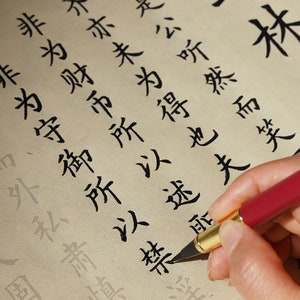 林
是公听然而笑
亦未为得也夫
非为财币所以述
非为守御所以禁
外私肃慎
国